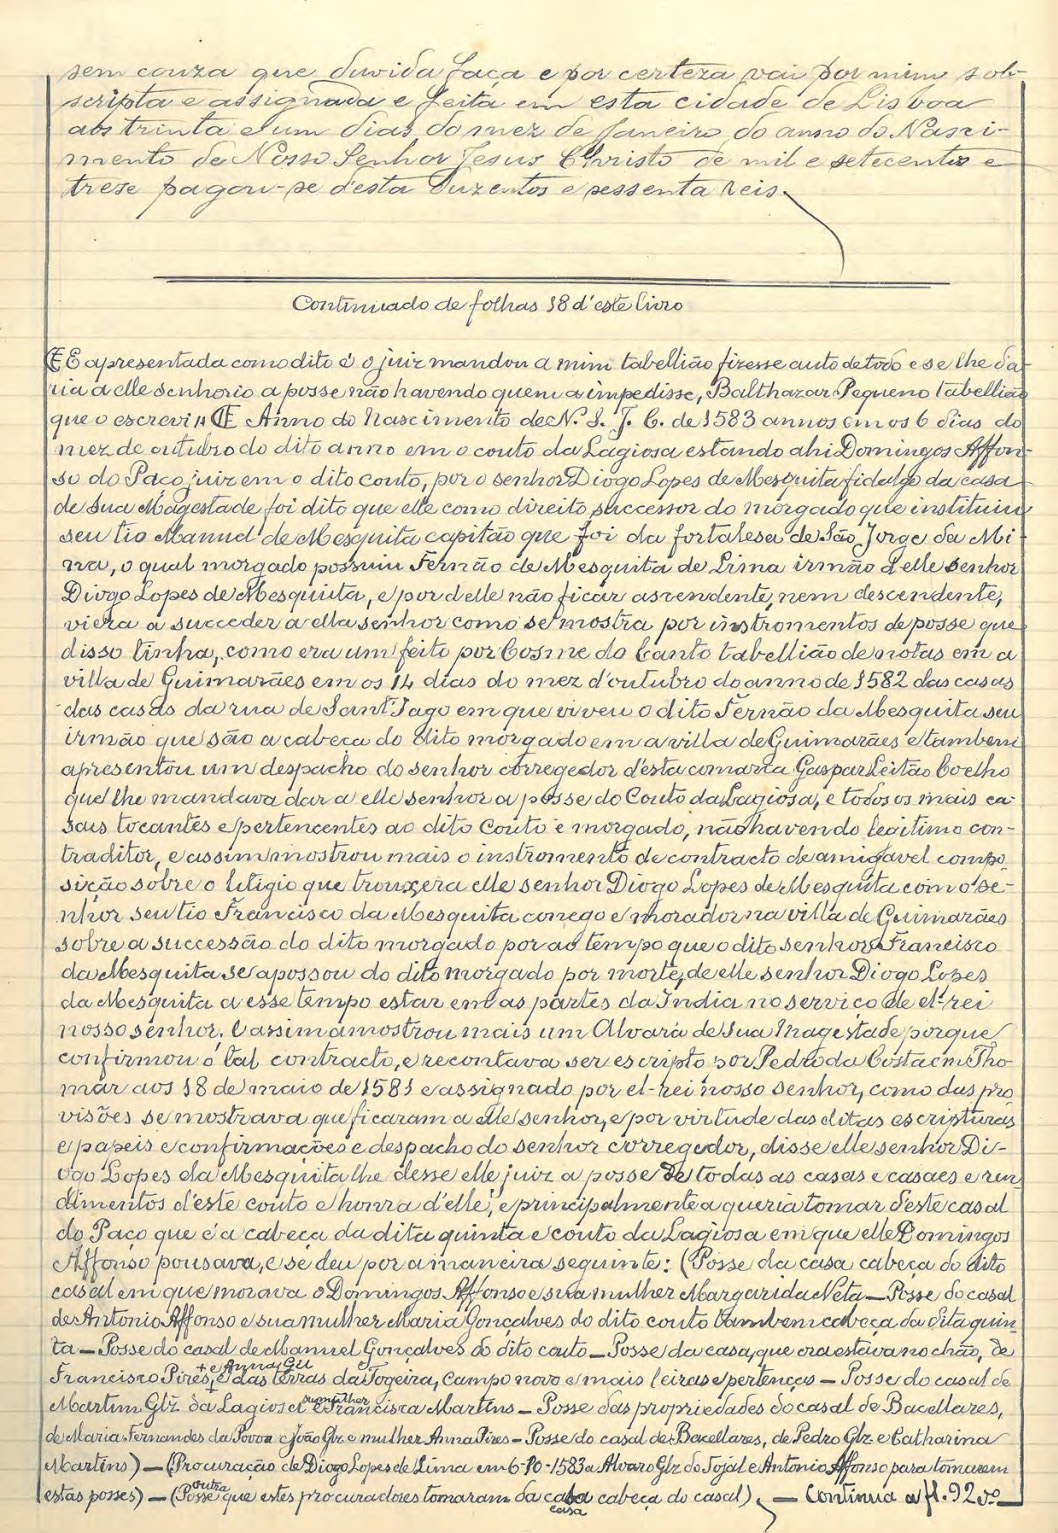 sem couza que duvida faça e por certeza vai por mim sob-
scripta e assignada e feita em esta cidade de Lisboa
aos trinta e um dias do mez de Janeiro do anno do Nasci-
mento de Nosso Senhor Jesus Christo de mil e setecentos e
trese pagou-se d'esta duzentos e sessenta reis
Continuado de folhas 18 d'este livro
E apresentada como dito é o juiz mandou a mim tabellião fizesse auto de todo e se lhe da-
ria a elle senhorio a posse não havendo quem a impedisse, Balthazar Pequeno tabellião
que o escrevi Anno do Nascimento de N. S. J. C. de 1583 annos em os 6 dias do
mez de outubro do dito anno em o couto da Lagiosa estando ahi Domingos Affon-
so do Paço juiz em o dito couto, por o senhor Diogo Lopes de Mesquita fidalgo da casa
de Sua Magestade foi dito que elle como direito successor do morgado que instituiu
seu tio Manuel de Mesquita capitão que foi da fortalesa de São Jorge da Mi-
na, o qual morgado possuiu Fernão de Mesquita de Lima irmão d'elle senhor
Diogo Lopes de Mesquita, e por d'elle não ficar ascendente, nem descendente,
viera a succeder a elle senhor como se mostra por instromentos de posse que
disso tinha, como era um feito por Cosme do Canto tabellião de notas em a
villa de Guimarães em os 14 dias do mez d'outubro do anno de 1582 das casas
das casas da rua de Sant'Iago em que viveu o dito Fernão da Mesquita seu
irmão que são a cabeça do dito morgado em a villa de Guimarães e tambem
apresentou um despacho do senhor corregedor d'esta comarca Gaspar Leitão Coelho
que lhe mandava dar a elle senhor a posse do Couto da Lagiosa, e todos os mais ca-
saes tocantes e pertencentes ao dito Couto e morgado, não havendo legitimo con-
traditor, e assim mostrou mais o instromento de contracto de amigavel compo-
sição sobre o letigio que trouxera elle senhor Diogo Lopes de Mesquita com o se-
nhor seu tio Francisco da Mesquita conego e morador na villa de Guimarães
sobre a successão do dito morgado por ao tempo que o dito senhor Francisco
da Mesquita se apossou do dito morgado por morte, de elle senhor Diogo Lopes
da Mesquita a esse tempo estar em as partes da India no serviço de el-rei
nosso senhor. E assim amostrou mais um Alvará de Sua Magestade porque
confirmou o tal contracto, e recontava ser escripto por Pedro da Costa em Tho-
mar aos 18 de maio de 1581 e assignado por el-rei nosso senhor, como das pro-
visões se mostrava que ficaram a elle senhor, e por virtude das ditas escripturas
e papeis e confirmações e despacho do senhor corregedor, disse elle senhor Di-
ogo Lopes da Mesquita lhe desse elle juiz a posse de todas as casas e casaes e ren-
dimentos d'este couto e honra d'elle, e principalmente a queria tomar d'este casal
do Paço que é a cabeça da dita quinta e couto da Lagiosa em que elle Domingos
Affonso pousava, e se deu por a maneira seguinte: (Posse da casa cabeça do dito
casal em que morava o Domingos Affonso e sua mulher Margarida Neta — Posse do casal
de Antonio Affonso e sua mulher Maria Gonçalves do dito couto tambem cabeça da dita quin-
ta — Posse do casal de Manuel Gonçalves do dito couto — Posse da casa, que ora estava no chão, de
+ e Anna Gil
Francisco Pires, + e das terras da Togeira, campo novo e mais leiras e pertenças — Posse do casal de
sua mulher
Martim Glz da Lagiosa e Francisca Martins — Posse das propriedades do casal de Bacellares,
de Maria Fernandes da Povoa e João Glz e mulher Anna Pires — Posse do casal de Bacellares, de Pedro Glz e Catharina
Martins) — (Procuração de Diogo Lopes de Lima em 6-10-1583 a Alvaro Glz do Tojal e Antonio Affonso para tomarem
outra
estas posses) — (Posse que estes procuradores tomaram da cabeça do casal), — Continua a fl. 92 vº
casa